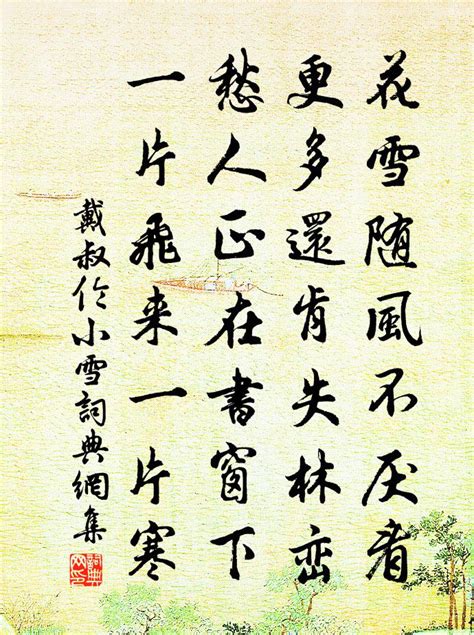 花雪随風不厌看
更多還肯失林峦
愁人正在書窗下
一片飛来一片寒
戴叔伦小雪詞典網集